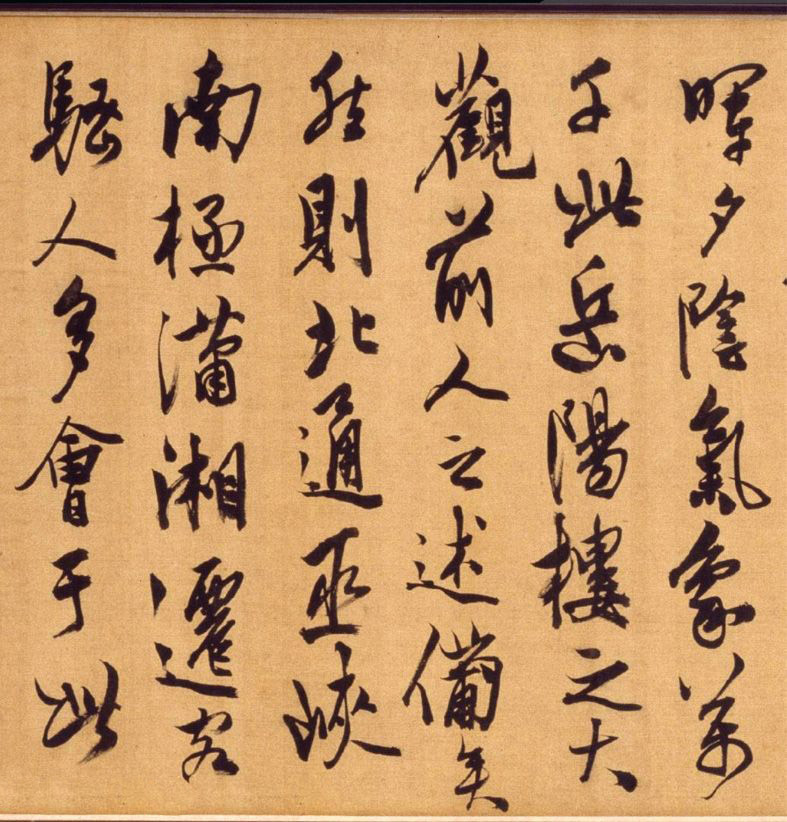 暉夕陰氣象萬
千此岳陽樓之大
觀前人之述備矣
然則北通巫峽
南極瀟湘遷客
騷人多會于此